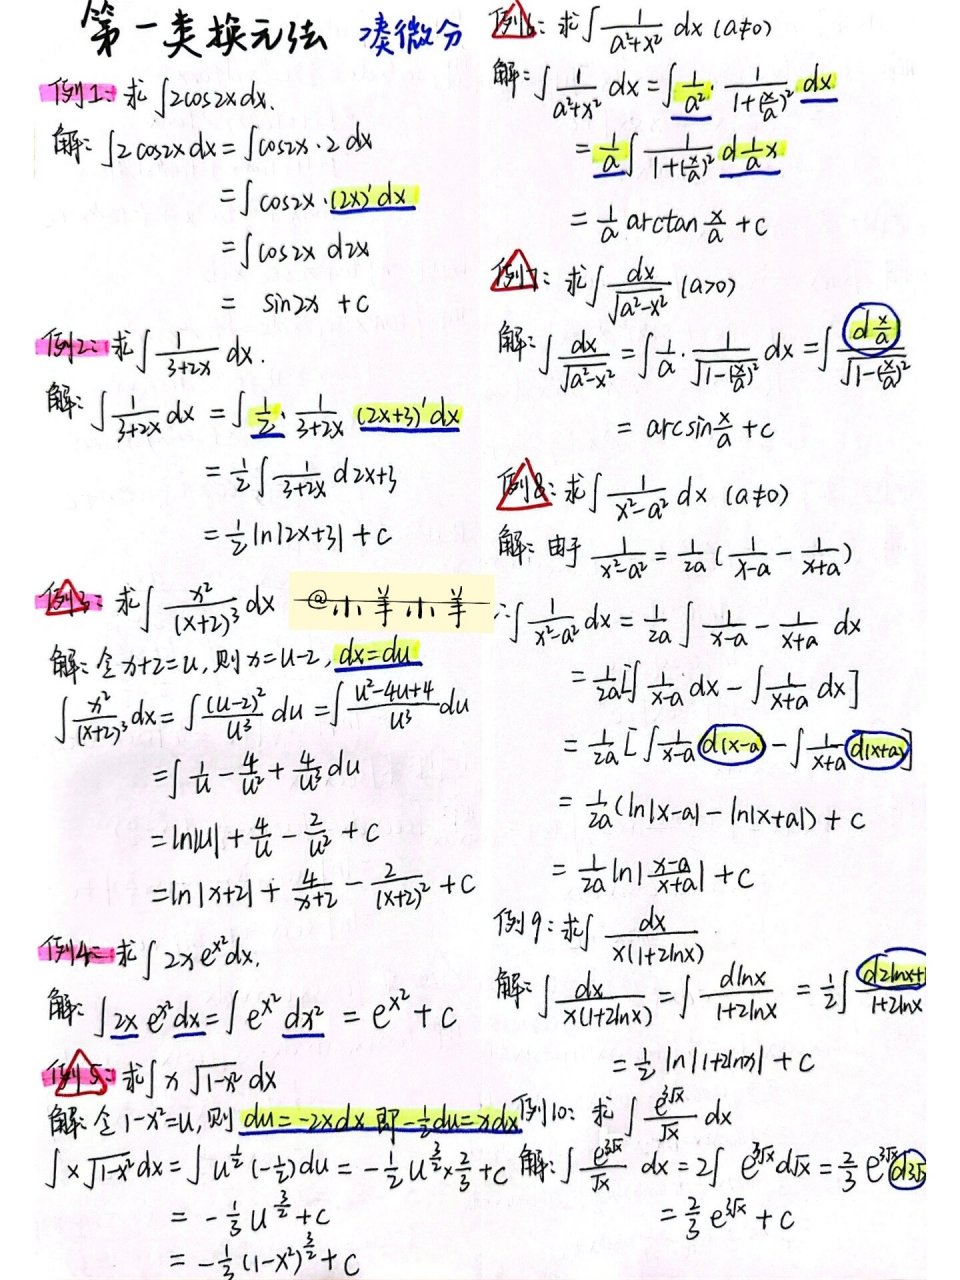 第一类换元法 凑微分
例1: 求∫2cos2xdx.
解: ∫2cos2xdx = ∫cos2x·2dx
= ∫cos2x·(2x)'dx
= ∫cos2x d2x
= sin2x + c
例2: 求∫ 1/(3+2x) dx.
解: ∫ 1/(3+2x) dx = ∫ 1/2 · 1/(3+2x) (2x+3)'dx
= 1/2 ∫ 1/(3+2x) d2x+3
= 1/2 ln|2x+3| + c
例3: 求∫ x²/(x+2)³ dx
@小羊小羊
解: 令x+2=u, 则x=u-2, dx=du
∫ x²/(x+2)³ dx = ∫ (u-2)²/u³ du = ∫ (u²-4u+4)/u³ du
= ∫ 1/u - 4/u² + 4/u³ du
= ln|u| + 4/u - 2/u² + c
= ln|x+2| + 4/(x+2) - 2/(x+2)² + c
例4: 求∫2xe^(x²)dx.
解: ∫2x e^(x²)dx = ∫e^(x²) dx² = e^(x²) + c
例5: 求∫x√(1-x²) dx
解: 令1-x²=u, 则 du=-2xdx 即 -1/2du=xdx
∫x√(1-x²)dx = ∫u^(1/2)(-1/2)du = -1/2 u^(3/2)×2/3 + c
= -1/3 u^(3/2) + c
= -1/3 (1-x²)^(3/2) + c
例6: 求∫ 1/(a²+x²) dx (a≠0)
解: ∫ 1/(a²+x²) dx = ∫ 1/a² · 1/(1+(x/a)²) dx
= 1/a ∫ 1/(1+(x/a)²) d 1/a x
= 1/a arctan x/a + c
例7: 求∫ dx/√(a²-x²) (a>0)
解: ∫ dx/√(a²-x²) = ∫ 1/a · 1/√(1-(x/a)²) dx = ∫ d x/a /√(1-(x/a)²)
= arcsin x/a + c
例8: 求∫ 1/(x²-a²) dx (a≠0)
解: 由于 1/(x²-a²) = 1/2a (1/(x-a) - 1/(x+a))
∴∫ 1/(x²-a²) dx = 1/2a ∫ 1/(x-a) - 1/(x+a) dx
= 1/2a [∫ 1/(x-a) dx - ∫ 1/(x+a) dx]
= 1/2a [∫ 1/(x-a) d(x-a) - ∫ 1/(x+a) d(x+a)]
= 1/2a (ln|x-a| - ln|x+a|) + c
= 1/2a ln|(x-a)/(x+a)| + c
例9: 求∫ dx/(x(1+2lnx))
解: ∫ dx/(x(1+2lnx)) = ∫ dlnx/(1+2lnx) = 1/2 ∫ d2lnx+1/(1+2lnx)
= 1/2 ln|1+2lnx| + c
例10: 求∫ e^(3√x)/√x dx
解: ∫ e^(3√x)/√x dx = 2∫ e^(3√x)d√x = 2/3 e^(3√x)d3√x
= 2/3 e^(3√x) + c